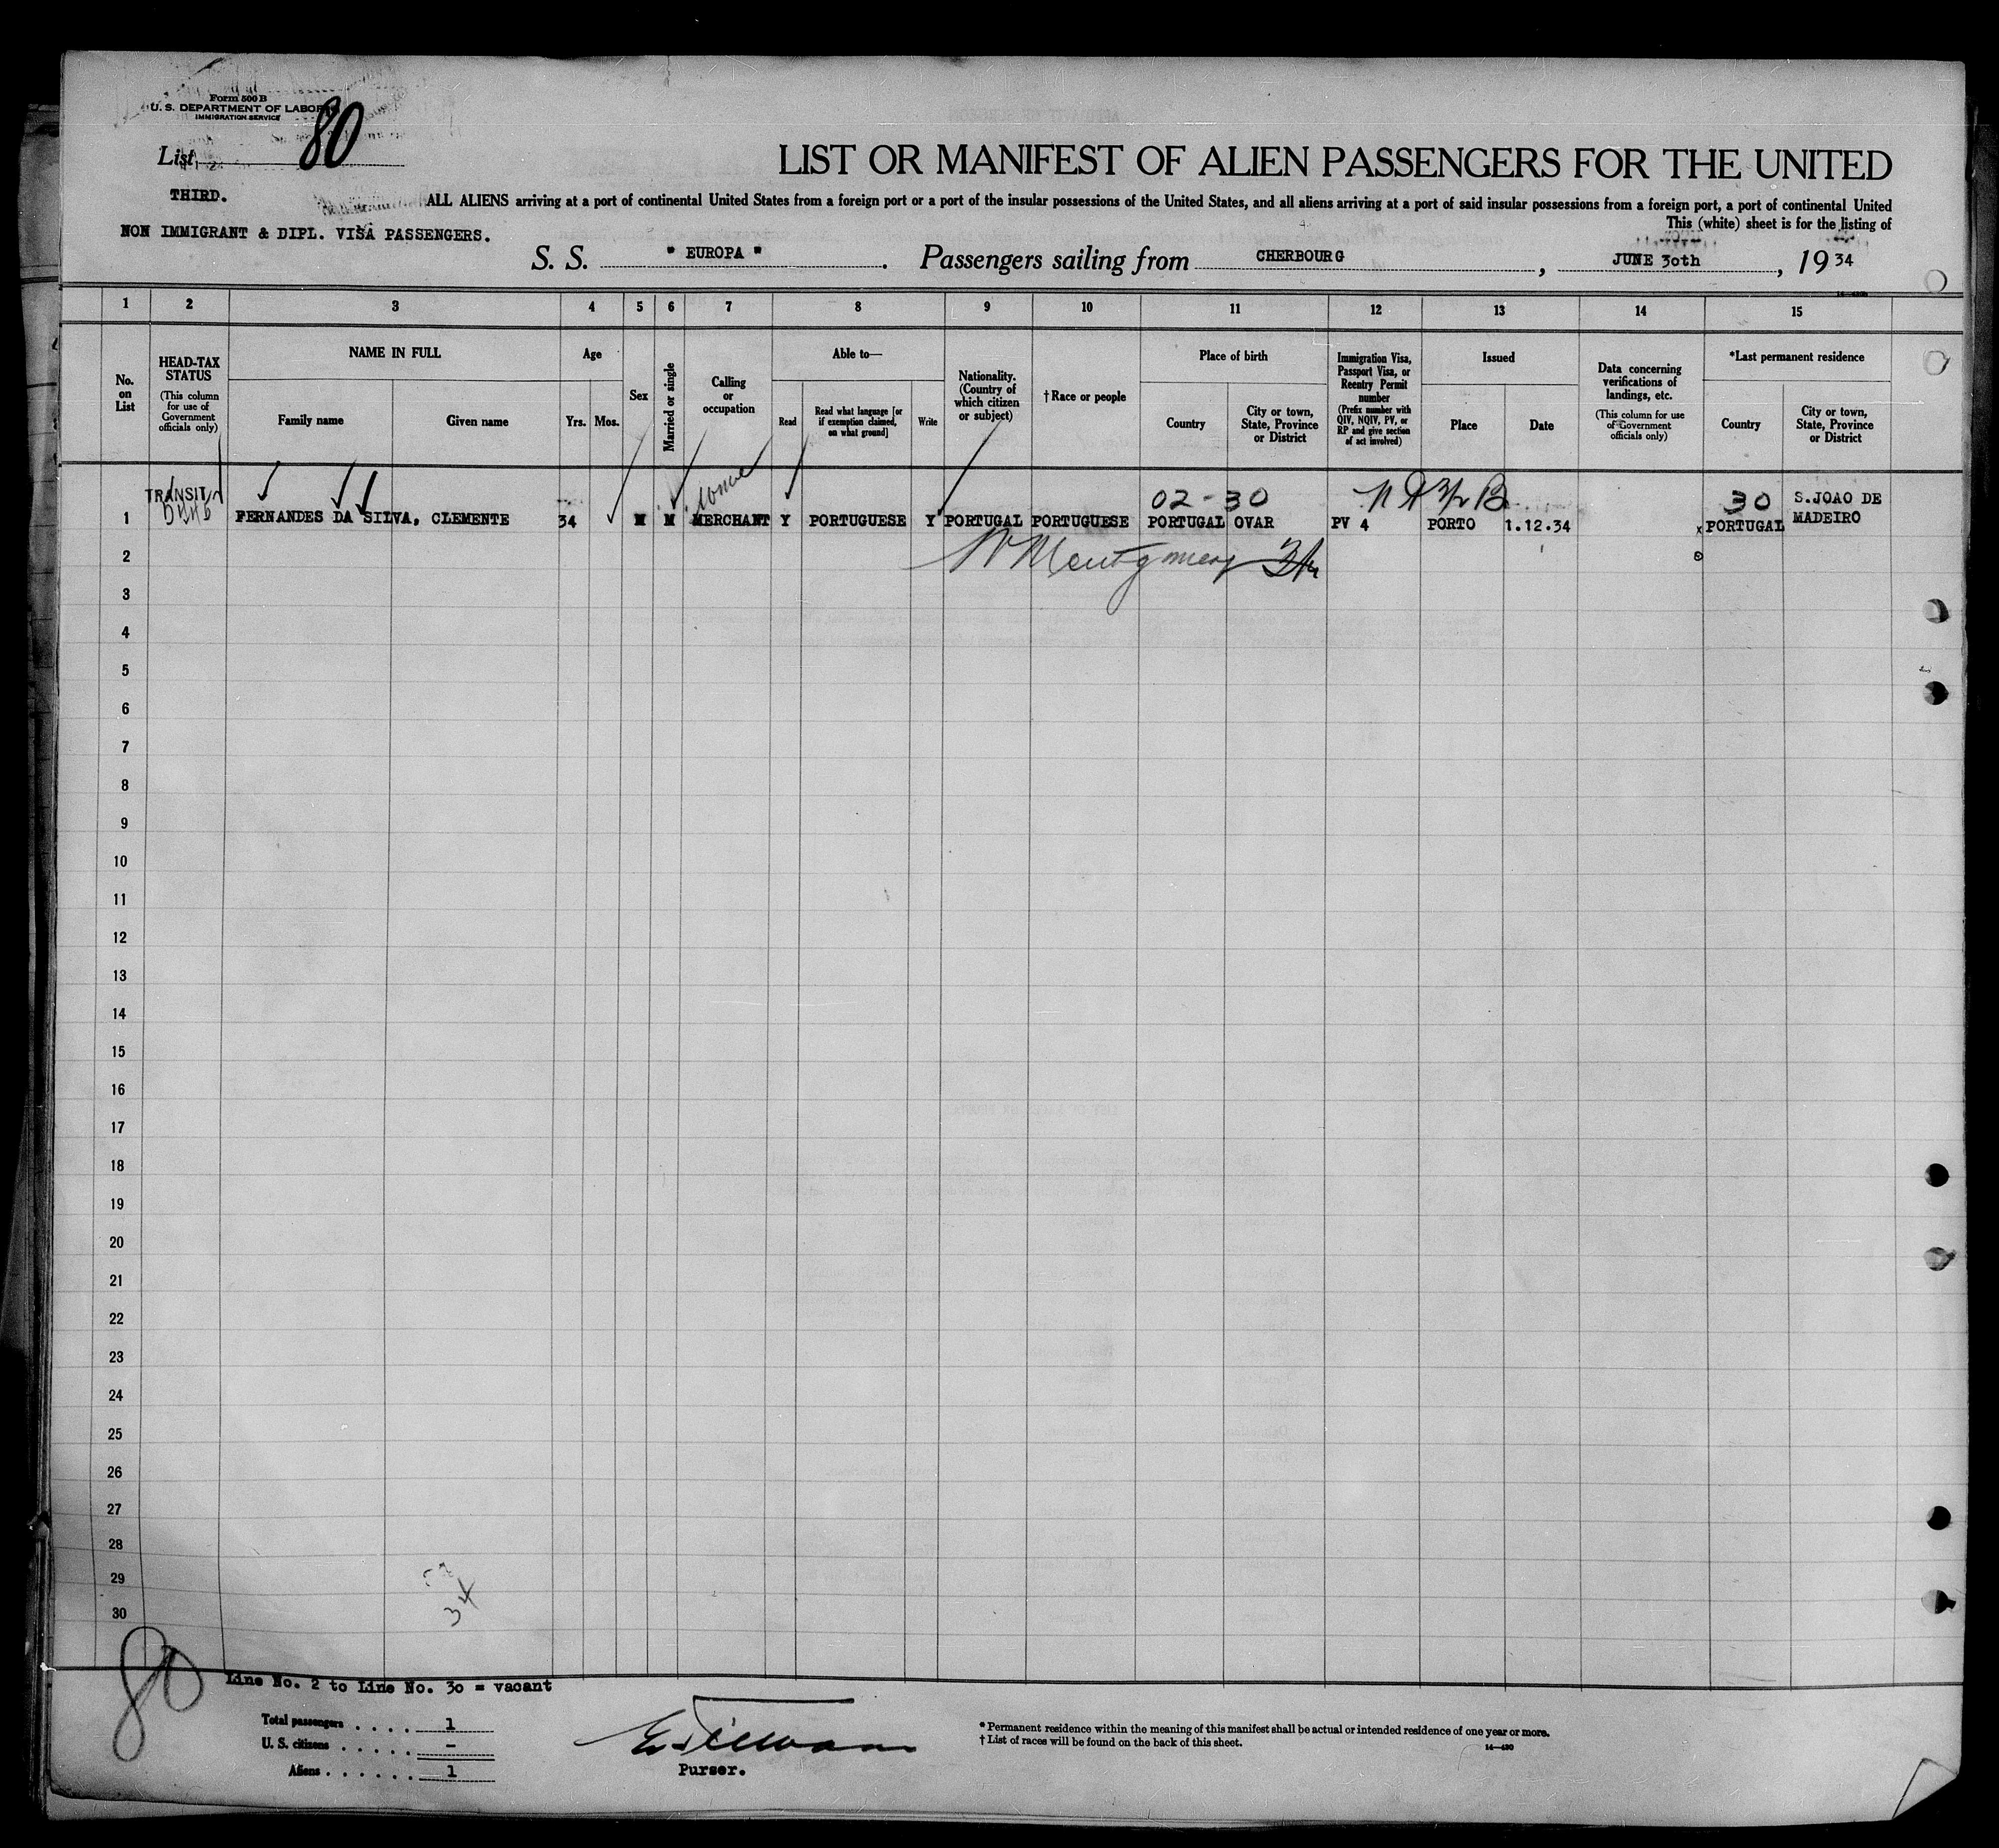 Form 500 B
U. S. DEPARTMENT OF LABOR
IMMIGRATION SERVICE
List 80
LIST OR MANIFEST OF ALIEN PASSENGERS FOR THE UNITED
THIRD.
ALL ALIENS arriving at a port of continental United States from a foreign port or a port of the insular possessions of the United States, and all aliens arriving at a port of said insular possessions from a foreign port, a port of continental United
This (white) sheet is for the listing of
NON IMMIGRANT & DIPL. VISA PASSENGERS.
S. S. " EUROPA ". Passengers sailing from CHERBOURG, JUNE 30th, 1934
1 2 3 4 5 6 7 8 9 10 11 12 13 14 15
No. on List
HEAD-TAX STATUS
(This column for use of Government officials only)
NAME IN FULL
Family name
Given name
Age
Yrs. Mos.
Sex
Married or single
Calling or occupation
Able to—
Read
Read what language [or if exemption claimed, on what ground]
Write
Nationality. (Country of which citizen or subject)
† Race or people
Place of birth
Country
City or town, State, Province or District
Immigration Visa, Passport Visa, or Reentry Permit number
(Prefix number with QIV, NQIV, PV, or RP and give section of act involved)
Issued
Place
Date
Data concerning verifications of landings, etc.
(This column for use of Government officials only)
*Last permanent residence
Country
City or town, State, Province or District
TRANSIT
02-30
30
1 FERNANDES DA SILVA, CLEMENTE 34 M M MERCHANT Y PORTUGUESE Y PORTUGAL PORTUGUESE PORTUGAL OVAR PV 4 PORTO 1.12.34 x PORTUGAL S.JOAO DE MADEIRO
2 Montgomery
3
4
5
6
7
8
9
10
11
12
13
14
15
16
17
18
19
20
21
22
23
24
25
26
27
28
29
30
34
80
Line No. 2 to Line No. 30 = vacant
Total passengers . . . . 1
U. S. citizens . . . . . –
Aliens . . . . . . 1
Purser.
* Permanent residence within the meaning of this manifest shall be actual or intended residence of one year or more.
† List of races will be found on the back of this sheet.
14—420